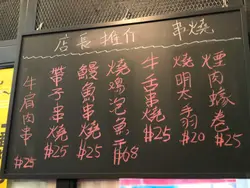 店長推介 串燒
煙肉蠔卷 $25
燒明太羽 $20
牛舌串燒 $25
燒鷄泡魚干 $68
鰻魚串燒 $25
帶子串燒 $25
牛肩肉串 $25